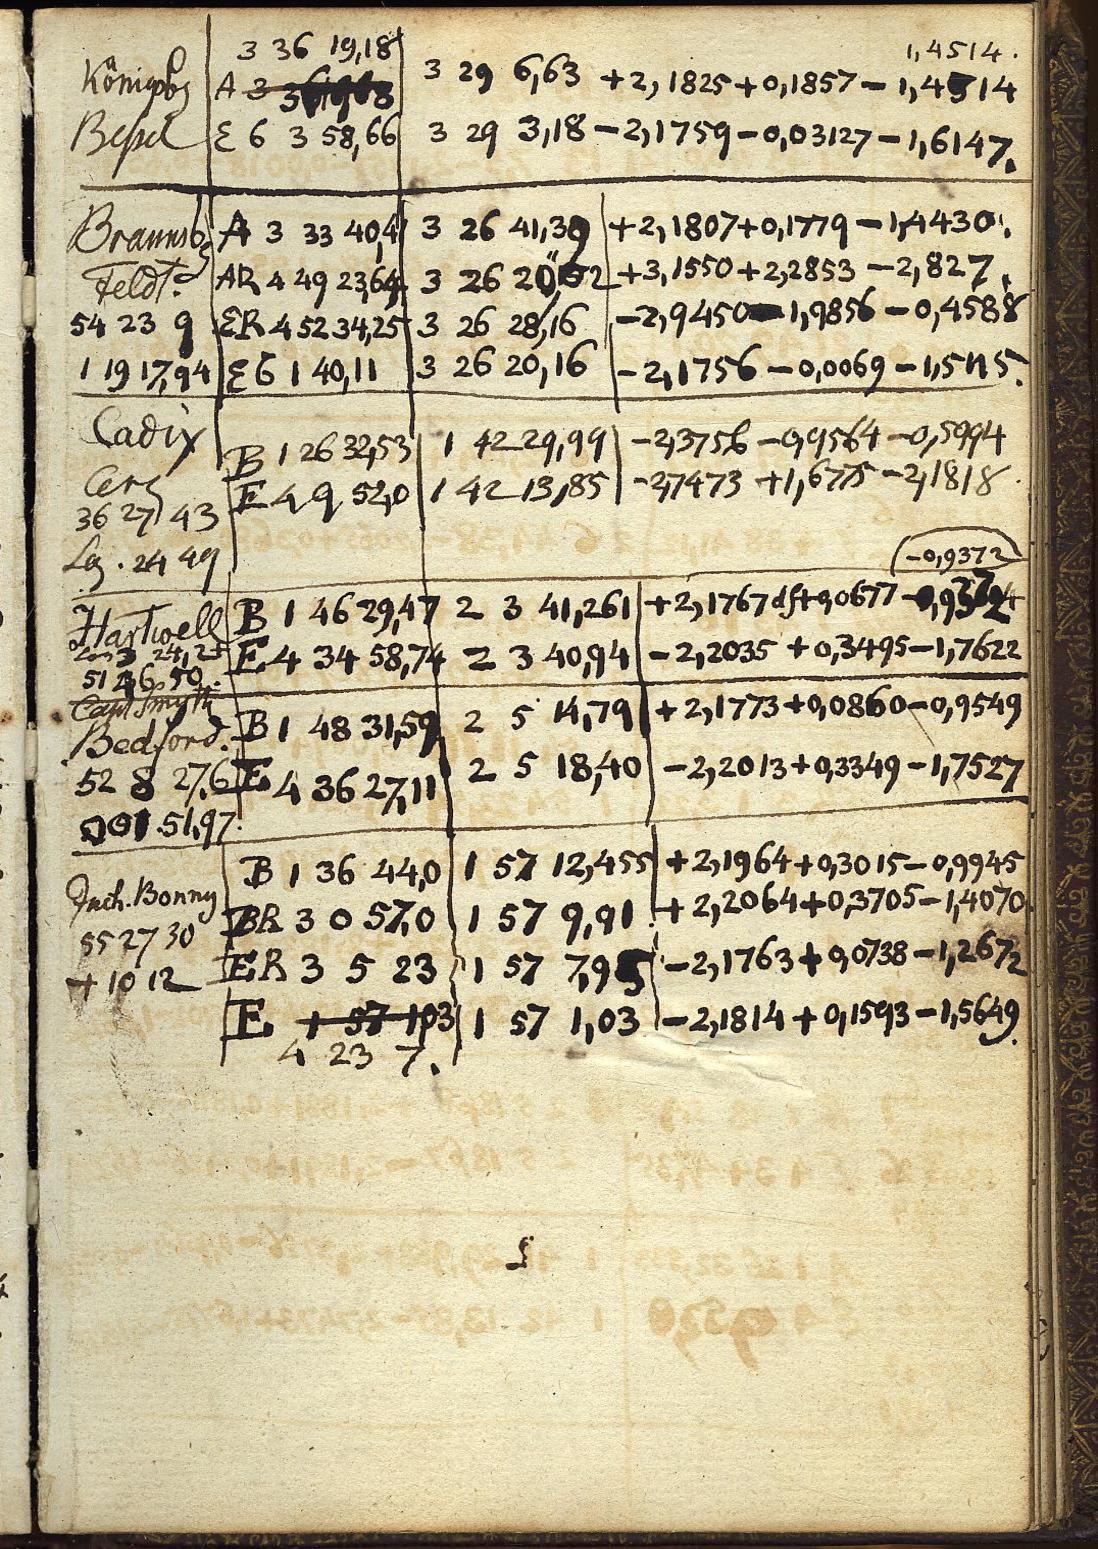 3 36 19,18 1,4514.
Königsbg A 3 3 29 6,63 +2,1825+0,1857−1,4514
Bessel E 6 3 58,66 3 29 3,18 −2,1759−0,03127−1,6147.
Braunsbg A 3 33 40,4 3 26 41,39 +2,1807+0,1779−1,4430.
Feldt. AR 4 49 23,64 3 26 20, +3,1550+2,2853−2,827.
54 23 9 ER 4 52 34,25 3 26 28,16 −2,9450−1,9856−0,4588
1 19 17,94 E 6 1 40,11 3 26 20,16 −2,1756−0,0069−1,5115.
Cadix B 1 26 32,53 1 42 29,99 −2,3756−0,9564−0,5994
Cerq E 4 9 52,0 1 42 13,85 −2,7473+1,6775−2,1818.
36 27 43
Lg. 24 49 −0,9372
Hartwell B 1 46 29,47 2 3 41,261 +2,1767df+0,0677
24,25 E 4 34 58,74 2 3 40,94 −2,2035+0,3495−1,7622
51 46 50.
Capt Smyth
Bedford. B 1 48 31,59 2 5 14,79 +2,1773+0,0860−0,9549
52 8 27,6 E 4 36 27,11 2 5 18,40 −2,2013+0,3349−1,7527
001.51,97.
B 1 36 44,0 1 57 12,455 +2,1964+0,3015−0,9945
Inch.Bonny BR 3 0 57,0 1 57 9,91 +2,2064+0,3705−1,4070.
55 27 30 ER 3 5 23 1 57 7,95 −2,1763+0,0738−1,2672
+10 12 E 1 57 1,03 1 57 1,03 −2,1814+0,1593−1,5649.
4 23 7.